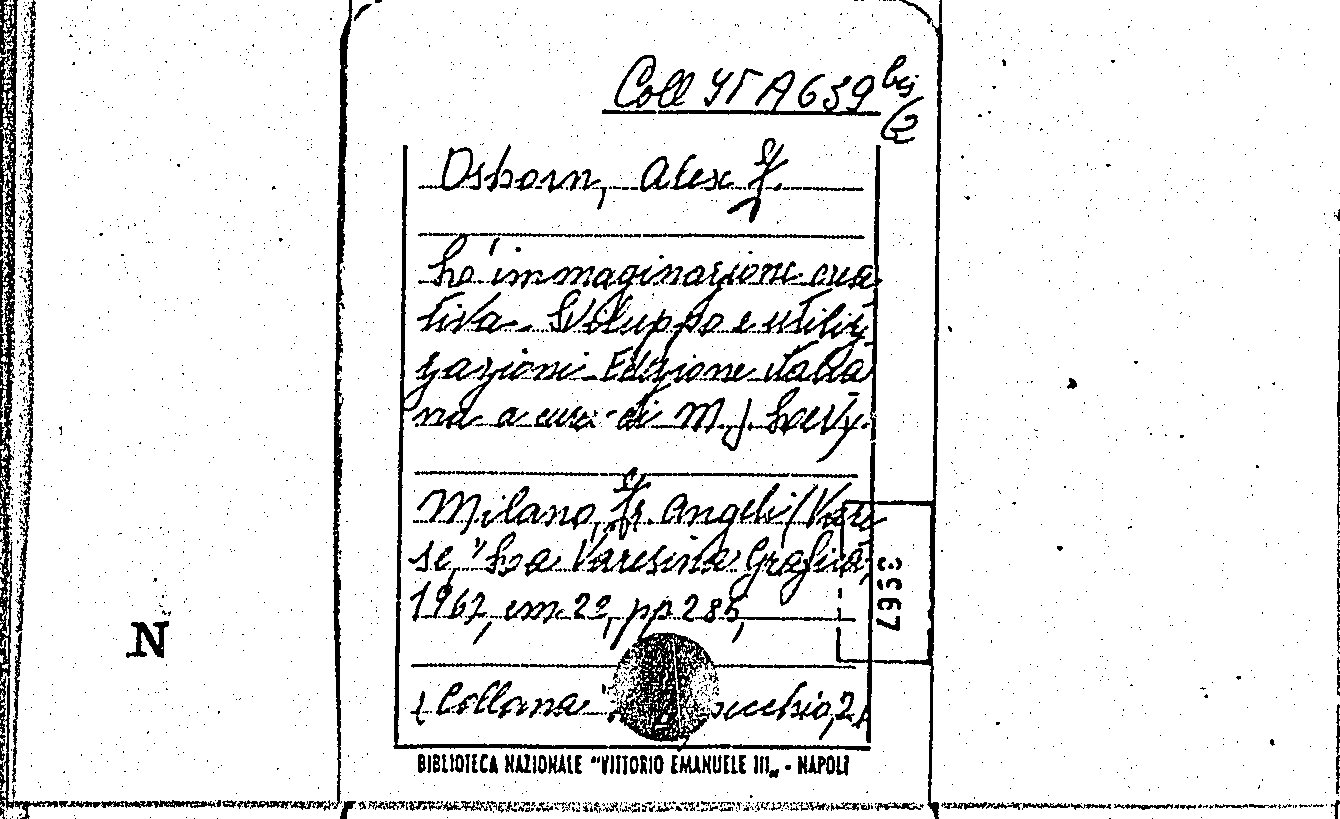 Coll YΓ A 639 bis
(2
Osborn, Alex F.
L'immaginazione crea
tiva. Sviluppo e utiliz
zazioni. Edizione italia
na a cura di M. J.
Milano, Fr. Angeli (Vare
se, "La Varesina Grafica,
1967, cm. 22, pp 285,
(Collana "
BIBLIOTECA NAZIONALE "VITTORIO EMANUELE III„ - NAPOLI
3367
N